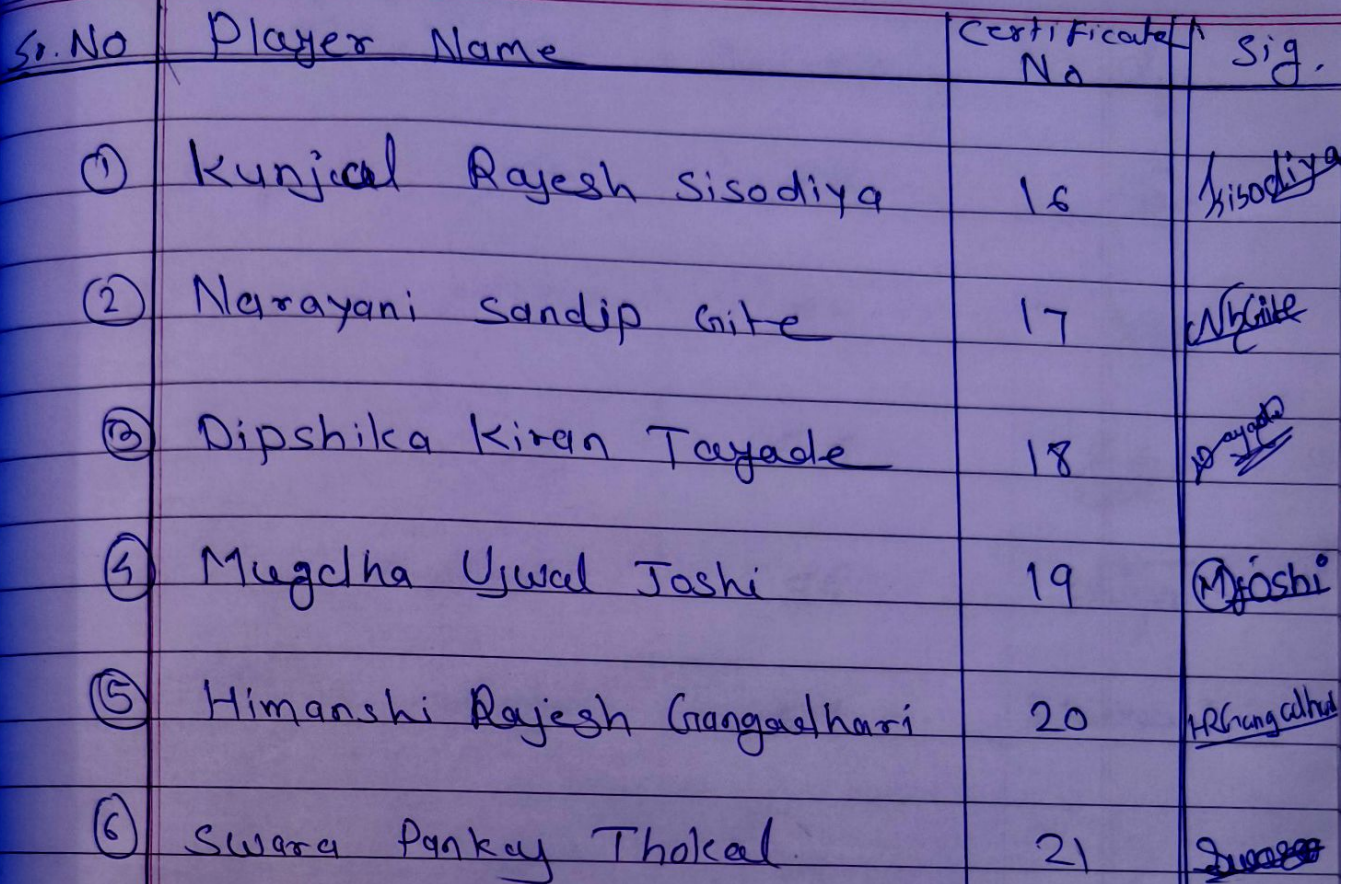 Sr. No Player Name Certificate No Sig.
① Kunjal Rajesh Sisodiya 16 Sisodiya
② Narayani Sandip Gite 17 NSGite
③ Dipshika Kiran Tayade 18
④ Mugdha Ujwal Joshi 19 MJoshi
⑤ Himanshi Rajesh Gangadhari 20 HRGangadhari
⑥ Swara Pankaj Thokal 21